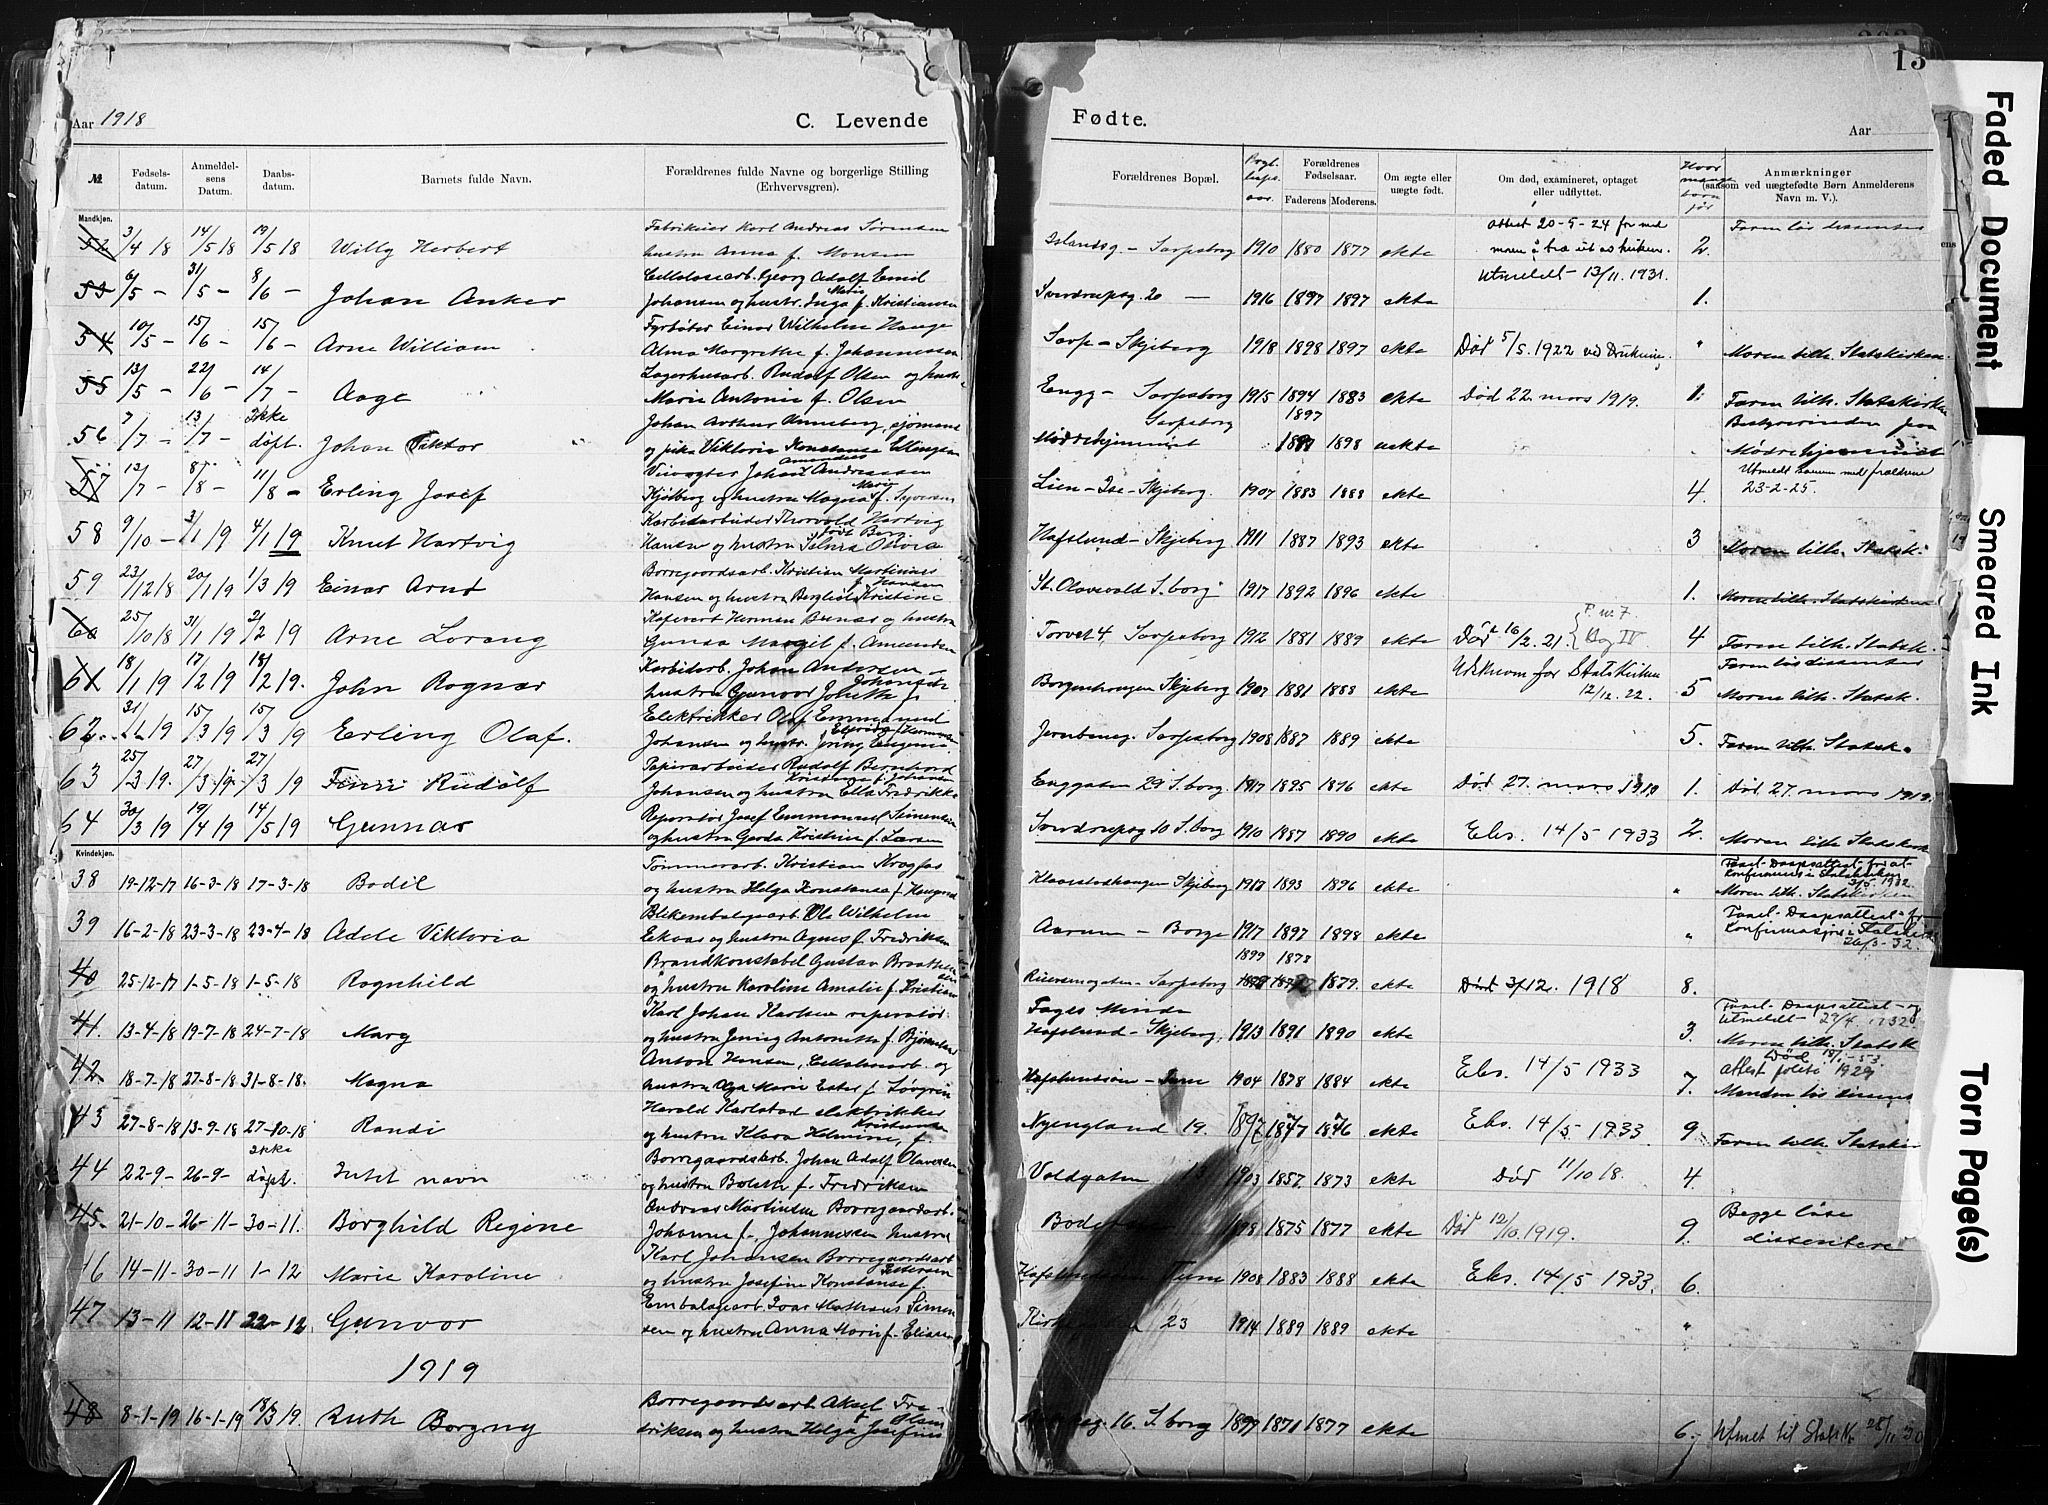 Aar 1918
C. Levende
№
Fødsels-
datum.
Anmeldel-
sens
Datum.
Daabs-
datum.
Barnets fulde Navn.
Forældrenes fulde Navne og borgerlige Stilling
(Erhvervsgren).
Mandkjøn.
52 3/4 18 14/5 18 19/5 18 Willy Herbert
Fabrikeier Karl Andreas Sørensen
hustru Anna f. Monsen
53 6/5 – 31/5 – 8/6 – Johan Anker
Cellulosearb. Georg Adolf Emil
Johansen og hustr. Inga Marie f. Kristiansen
54 10/5 – 15/6 – 15/6 – Arne William
Fyrbøter Einar Wilhelm Hauge
Alma Margrethe f. Johannessen
55 13/5 – 22/6 – 14/7 – Aage
Lagerhusarb. Rudolf Olsen og hustr.
Marie Antonie f. Olsen
56 7/7 – 13/7 – Ikke døpt. Johan Viktor
Johan Arthur Anneberg, sjømand
og pike Viktoria Konstanse Ellingsen
57 12/7 – 8/8 – 11/8 – Erling Josef
Veivogter Johan Amandus Andreassen
Kjølberg og hustru Magna Marie f. Syversen
58 9/10 – 3/1 19 4/1 19 Knut Hartvig
Karbidarbeider Thorvald Hartvig
Hansen og hustru Selma Olivia født Berg
59 23/12 18 20/1 19 1/3 19 Einar Arnt
Borregaardsarb. Kristian Martinius
Hansen og hustru Bergliot Kristine f. Hansen
60 25/10 18 31/1 19 2/2 19 Arne Lorang
Kafevert Herman Bernes og hustru
Gunda Margit f. Amundsen
61 18/1 19 17/2 19 18/2 19. John Ragnar
Karbidarb. Johan Andersen og
hustru Gunvor Josette f. Johansen
62. 31/ 19 15/3 19 15/3 19 Erling Olaf.
Elektrikker Olaf Emmanuel
Johansen og hustr. Jenny Eugenie
63 25/3 19. 27/3 19. 27/3 19 Finn Rudolf
Papirarbeider Rudolf Bernhard
Johansen og hustru Ella Fredrikke Kristiane f. Johansen
64 30/3 19 19/4 19 14/5 19 Gunnar
Reparatør Josef Emmanuel Simensen
og hustru Gerda Kristine f. Larsen
Kvindekjøn.
38 19-12-17 16-3-18 17-3-18 Bodil
Tømmerarb. Kristian Kragfos
og hustru Helga Konstanse f. Haugerud
39 16-2-18 23-3-18 23-4-18 Adele Viktoria
Blikemballagearb. Ole Wilhelm
Ekaas og hustru Agnes f. Fredriksen
40 25-12-17 1-5-18 1-5-18 Ragnhild
Brandkonstabel Gustav Braathen
og hustru Karoline Amalie f. Kristiansen
41. 13-4-18 19-7-18 24-7-18 Mary
Karl Johan Karlsen reperatør
og hustru Jenny Antonette f. Bjørnland
42 18-7-18 27-8-18 31-8-18. Magna
Anton Hansen, Cellulosearb. og
hustru Olga Marie Ester f. Løvgren
43 27-8-18 13-9-18 27-10-18 Randi
Harald Karlstad elektrikker
og hustru Klara Helmine, f. Kristiansen
44 22-9- 26-9- Ikke døpt. Intet navn
Borregaardsarb. Johan Adolf Olavesen
og hustru Bolette f. Fredriksen
45. 21-10- 26-11- 30-11. Borghild Regine
Andreas Martinsen Borregaardarb.
Johanne f. Johannessen hustru
46 14-11- 30-11 1-12 Marie Karoline
Karl Johansen Borregaardsarb
og hustru Josefine Konstanse f. Pettersen
47 13-11 12-11 22-12. Gunvor
Emballagearb. Ivar Mathæus Simen-
sen og hustru Anna Marie f. Eliassen
1919
48 8-1-19 16-1-19 18/3 19. Ruth Borgny
Borregaardsarb Aksel Fre-
driksen og hustru Helga Josefine f. Olsen
Fødte.
13
Aar
Forældrenes Bopæl.
Forældrenes
Fødselsaar.
Faderens Moderens.
Om ægte eller
uægte født.
Om død, examineret, optaget
eller udflyttet.
Hvor mange barn før
Anmærkninger
(saasom ved uægtefødte Børn Anmelderens
Navn m. V.).
Islandsg – Sarpsborg 1910 1880 1877 ekte Attest 20-5-24 for med moren å træ ut av kirken. Utmeldt 13/11. 1931. 2. Faren løs dissenter
Sverdrupsg. 20 — 1916 1897 1897 ekte 1.
Sarp – Skjeberg 1918 1898 1897 ekte Død 5/5. 1922 ved drukning " Moren tilh. Statskirken
Engg – Sarpsborg 1915 1894 1883 ekte Død 22. mars 1919. 1. Faren tilh. Statskirken
Sarpsborg Mødrehjemmet 1897 1898 uekte Bestyrerinden fra Mødrehjemmet
Lien – Ise – Skjeberg. 1907 1883 1888 ekte 4. Utmeldt sammen med forældrene 23-2-25.
Hafslund – Skjeberg 1911 1887 1893 ekte 3 Moren tilh. Statsk.
St. Olavsvold S.borg 1917 1892 1896 ekte 1. Moren tilh. Statskirken
Torvet 4, Sarpsborg 1912 1881 1889 ekte Død 16/2. 21. F. nr. 7 Bog IV 4 Faren tilh. Statsk.
Borgenhaugen Skjeberg 1907 1881 1888 ekte Utskreven for Statskirken 12/12. 22. 5 Faren løs dissenter Moren tilh. Statsk.
Jernbaneg. Sarpsborg 1908 1887 1889 ekte 5. Faren tilh. Statsk.
Enggaten 29 S.borg 1917 1895 1896 ekte Død 27. mars 1919 1. Død 27. mars 1919.
Sverdrupsg 10 S.borg 1910 1887 1890 ekte Eks. 14/5 1933 2. Moren tilh Statskirk
Klavestadhaugen Skjeberg 1917 1893 1896 ekte " Tael. Daapsattest for at Konfirmeres i Statskirken 3/5. 1932. Moren tilh. Statskirken
Aarum – Borge 1917 1897 1898 ekte " Tael. Daapsattest for Konfirmasjon i Statskirk 26/3-32
Ruersensgaten – Sarpsborg 1899 1878 1879 ekte Død 3/12. 1918 8.
Fages Minde Hafslund – Skjeberg. 1913 1891 1890 ekte 3. Tael. Daapsattest og Utmeldt 29/4 1932 Moren tilh. Statsk
Hafslundsøen – Tune 1904 1878 1884 ekte Eks. 14/5 1933 7. Død 18/1-53 Attest politi 1929 Manden løs dissenter
Nyengland 19. 1897 1877 1876 ekte Eks. 14/5 1933. 9. Faren tilh. Statskir
Voldgaten 13 1903 1857. 1873 ekte Død 11/10 18. 4.
1898 1875 1877 ekte Død 12/10. 1919. 9. Begge løse dissentere
Hafslundsøen Tune 1908 1883 1888 ekte Eks. 14/5 1933. 6.
23 1914 1889 1889 ekte "
16. S.borg 1897 1871 1877 ekte 6. Utmet til Statsk. 28/11 30
Faded Document
Smeared Ink
Torn Page(s)